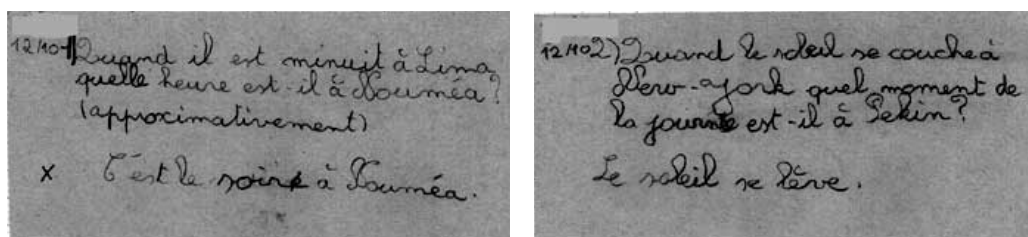 12/10 1) Quand il est minuit à Lima
quelle heure est-il à Nouméa?
(approximativement)
x C'est le soire à Nouméa.
12/10 2) Quand le soleil se couche à
New-York quel moment de
la journée est-il à Pekin?
Le soleil se lève.